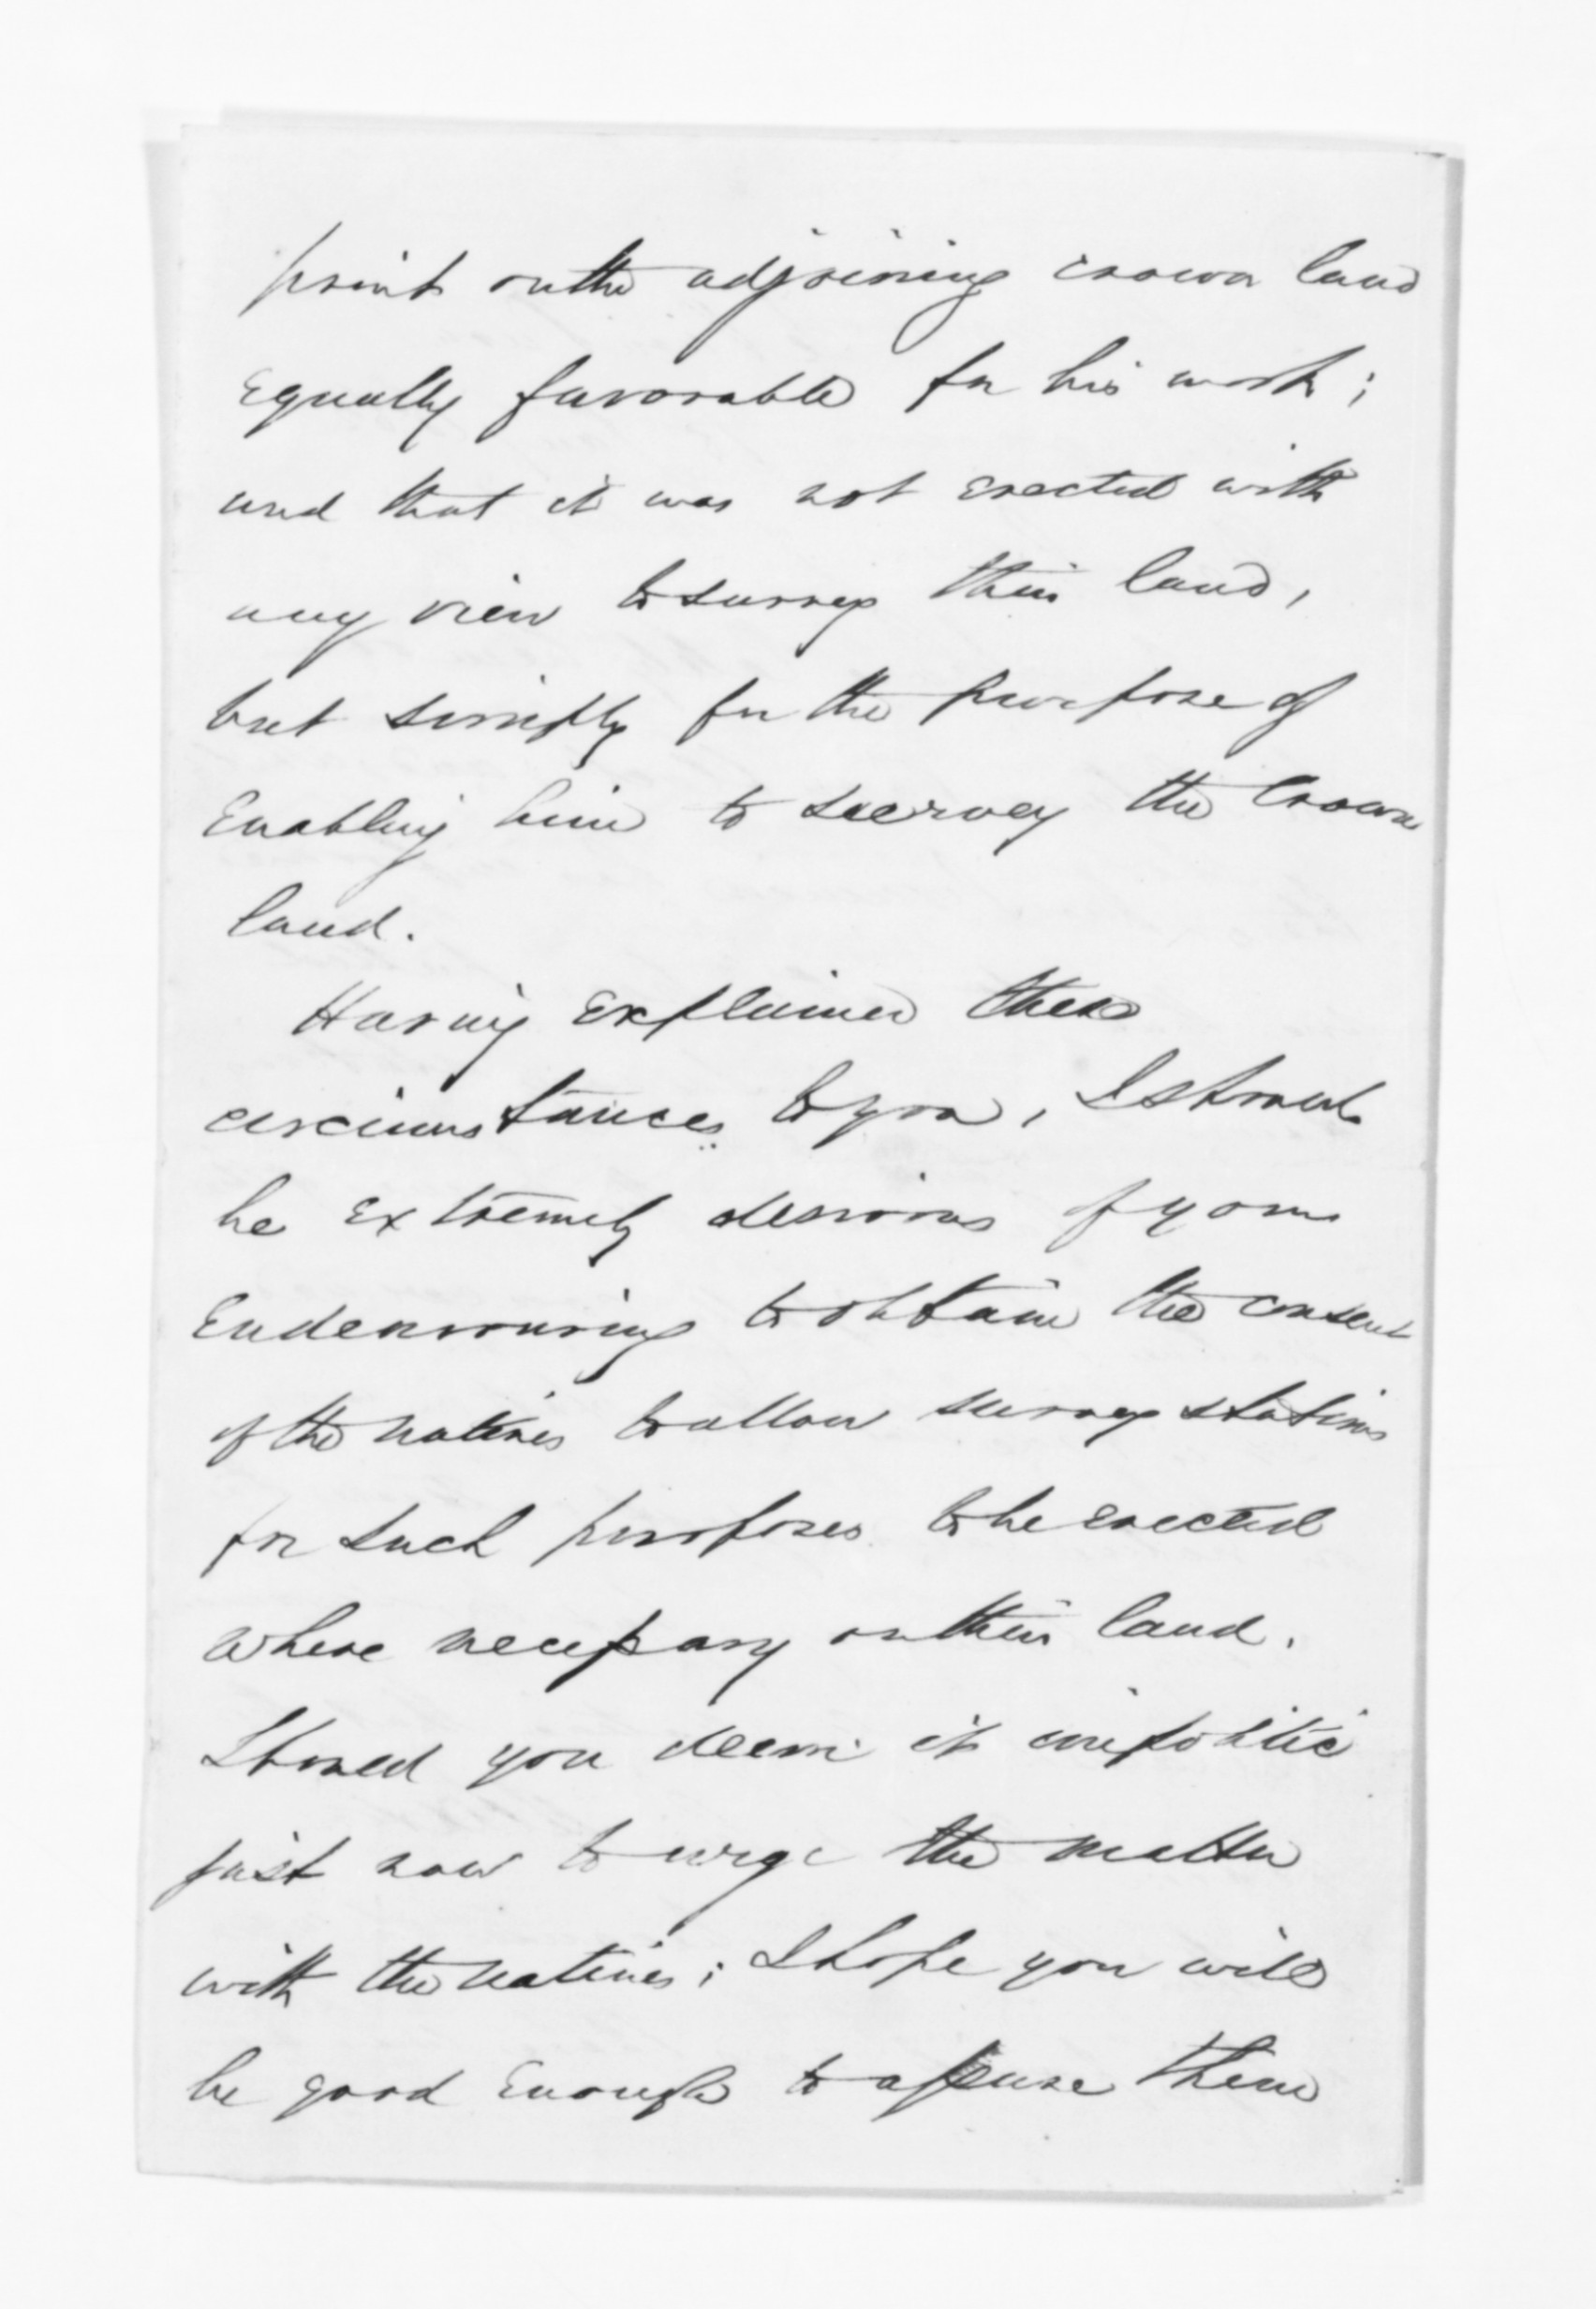 point on the adjoining crown land
equally favorable for his work;
and that it was not erected with
any view to survey their land,
but simply for the purpose of
enabling him to survey the Crown
land.
Having explained these
circumstances to you, I should
be extremely desirous of your
endeavouring to obtain the consent
of the natives to allow survey stations
for such purposes to be erected
where necessary on their land.
Should you deem it impolitic
just now to urge the matter
with the natives; I hope you will
be good enough to assure them